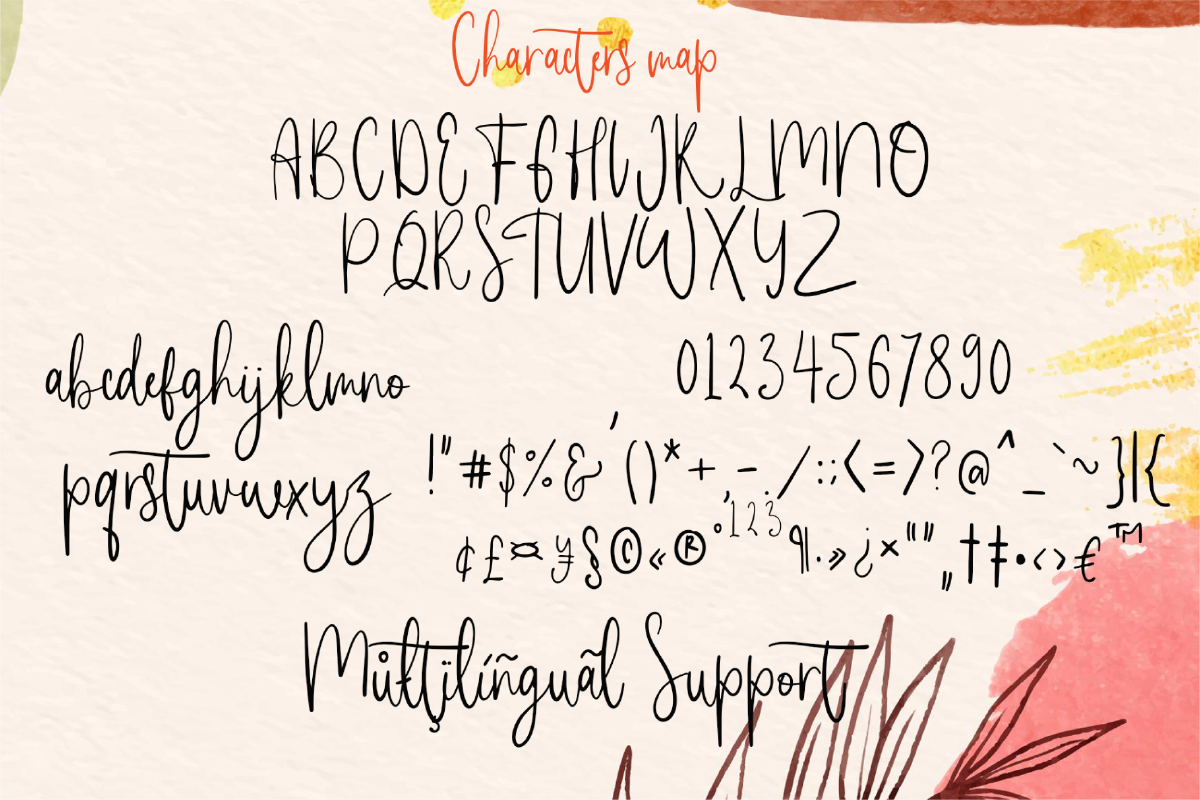 Characters map
ABCDEFGHIJKLMNO
PQRSTUVWXYZ
abcdefghijklmno
pqrstuvwxyz
01234567890
!"#$%&'()*+,-./:;<=>?@^_`~}|{
¢£¤¥§©«®°¹²³¶·»¿×“”„†‡•‹›€™
Můłţïlíñguãl Support